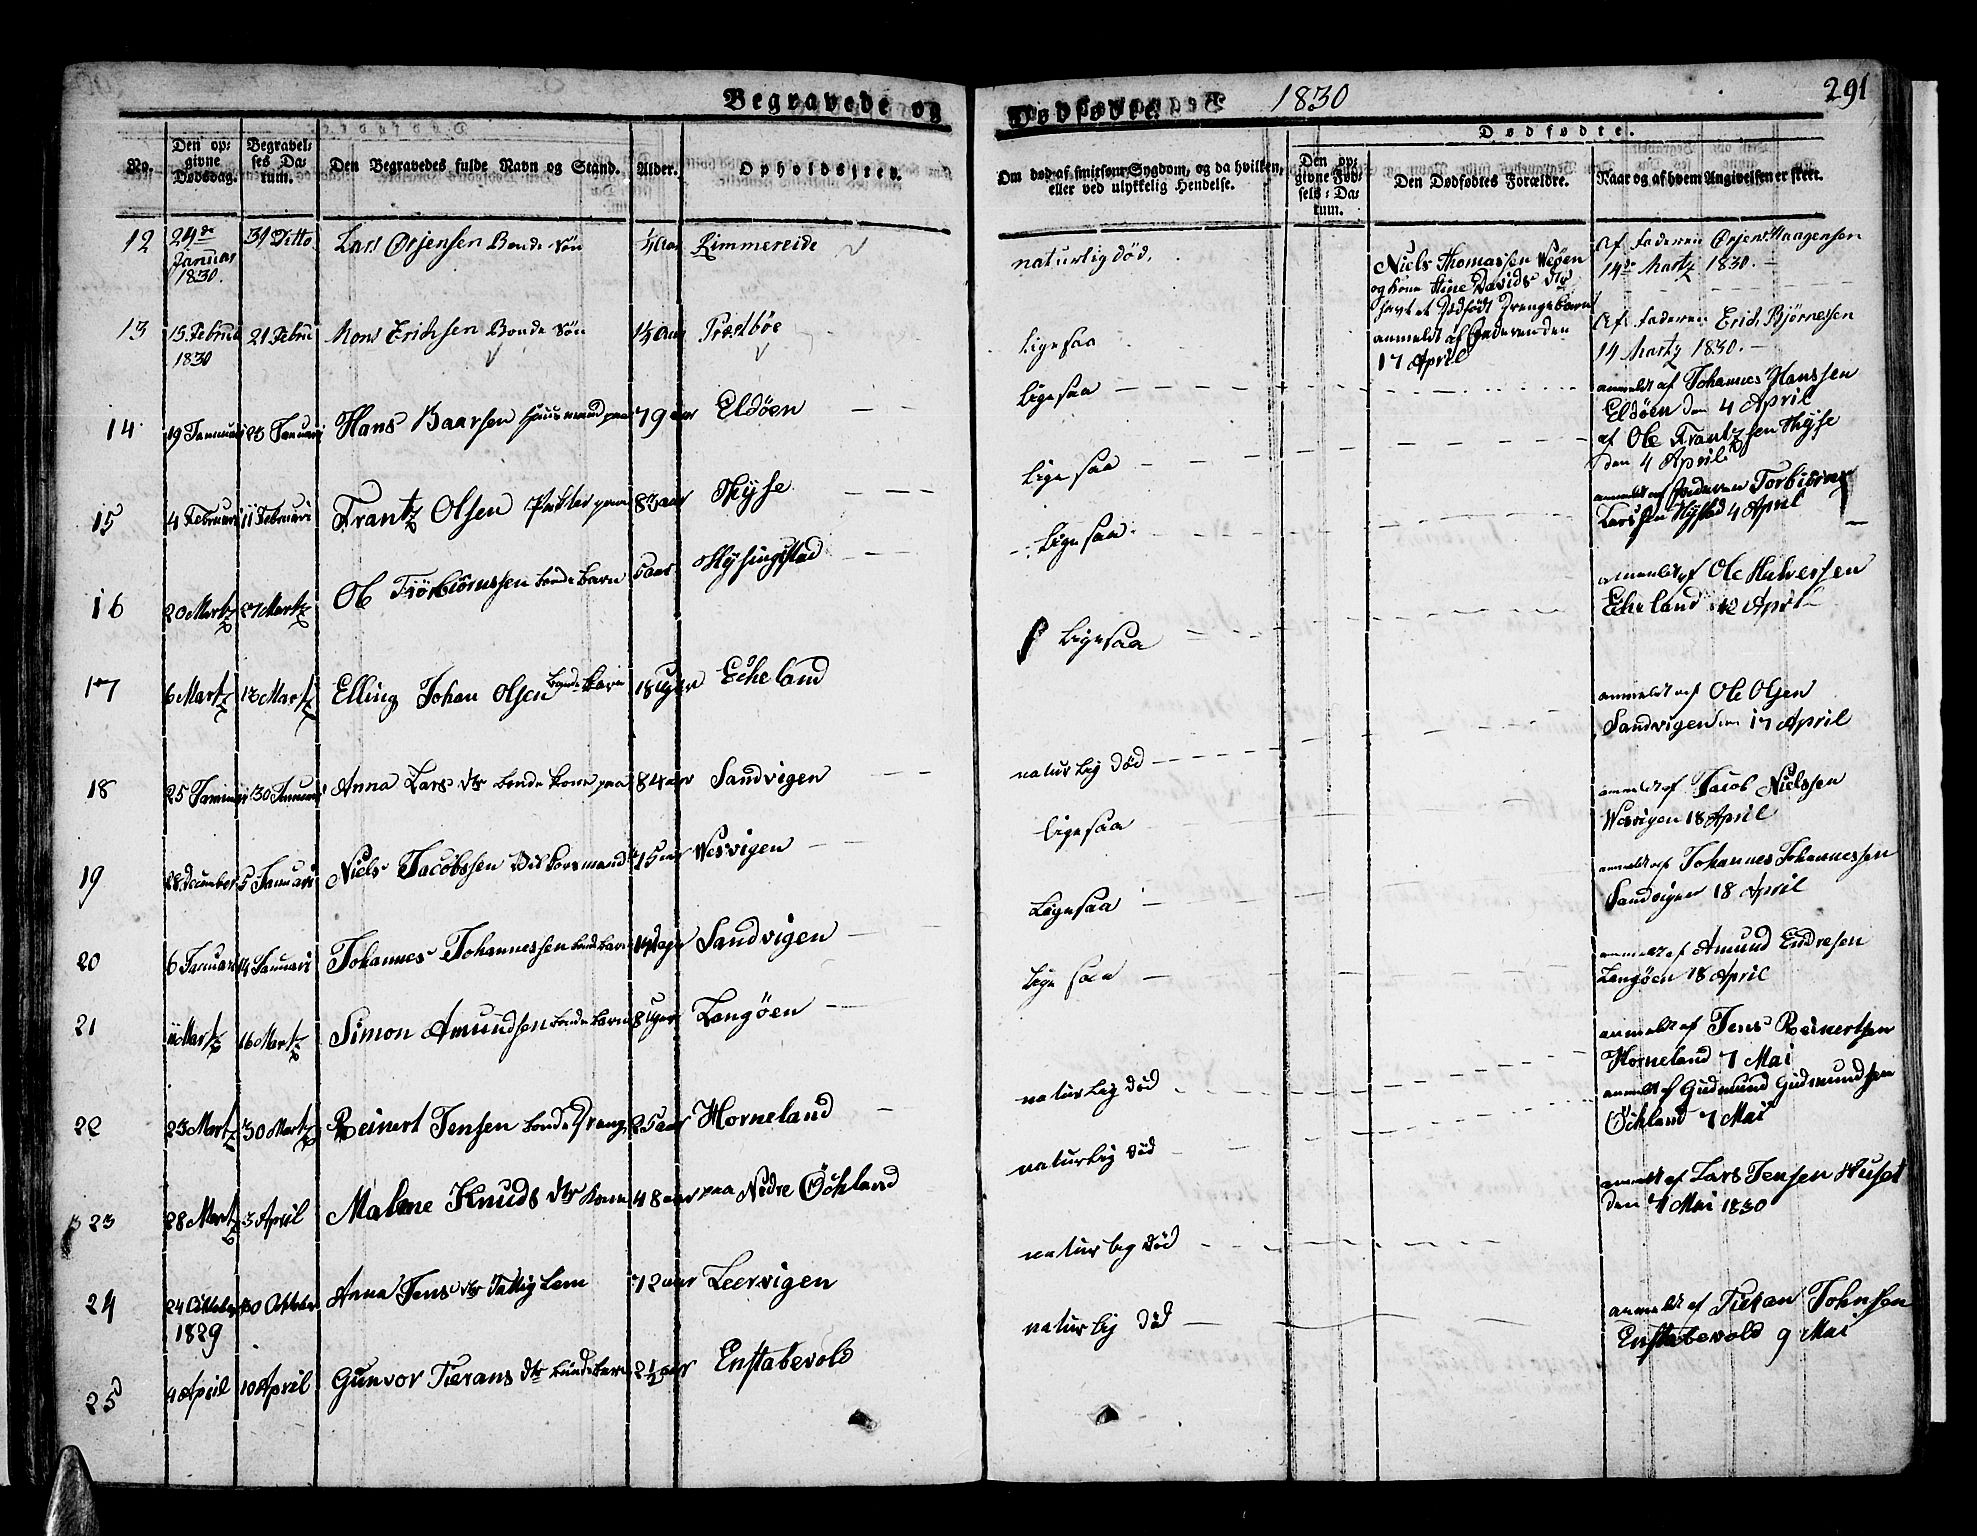 Begravede og Dødfødte. 1830 291
No. Den opgivne Dødsdag. Begravelses Datum. Den Begravedes fulde Navn og Stand. Alder. Opholdssted. Om død af smitsom Sygdom, og da hvilken, eller ved ulykkelig Hendelse. Dødfødte. Den opgivne Fødsels-Datum. Den Dødfødtes Forældre. Naar og af hvem Angivelsen er skeet.
12 24de Januar 1830. 31 Ditto Lars Ørjensen Bonde Søn Rimmereide naturlig død. Af Faderen Ørjen Haagensen 14de Martz 1830.
Niels Thomassen Wepen
og Kone Stine Davids dtr
havt et Dødfødt Drengebarn
anmeldt af Faderen den
17 April
13 15 Februar 1830 21 Februar Mons Erichsen Bonde Søn 1/3 Aar Præstbøe lige saa Af Faderen Erich Bjørnesen 14 Martz 1830.
14 19 Januari 25 Januari Hans Baarsen Huusmand paa 79 aar Eldøen lige saa anmeldt af Johannes Hanssen Eldøen den 4 April
15 4 Februari 11 Februari Frantz Olsen paa 83 aar Hÿse lige saa af Ole Frantzsen Hÿse den 4 April
16 20 Martz 27 Martz Ole Tiørbiørnssen bonde barn 5 aar Hysingstad lige saa anmeldt af Faderen Torbiørn Larssen Hystad 4 April
17 6 Martz 13 Martz Elling Johan Olsen bonde barn 18 Uger Echeland lige saa anmeldt af Ole Halversen Echeland 12 April
18 25 Januari 30 Januari Anna Lars dtr bonde kone paa 84 aar Sandvigen naturlig død anmeldt af Ole Olsen Sandvigen den 17 April
19 28 December 5 Januari Niels Jacobssen Vilkorsmand 75 aar Wesvigen lige saa anmeldt af Jacob Nielssen Wesvigen 18 April
20 6 Januari 14 Januari Johannes Johannessen bonde barn 14 dage Sandvigen lige saa anmeldt af Johannes Johannessen Sandvigen 18 April
21 11 Martz 16 Martz Simon Amundsen bonde barn 8 Uger Langøen lige saa anmeldt af Amund Endresen Langøen 18 April
22 23 Martz 30 Martz Reinert Jensen bonde Dreng 25 aar Horneland naturlig død anmeldt af Jens Reinertsen Horneland 7 Mai
23 28 Martz 3 April Malene Knuds dtr kone 48 aar paa Nedre Öchland naturlig død anmeldt af Gudmund Gudmundsen Öchland 7 Mai
24 24 Octtober 1829 30 Octtober Anna Jens dtr Fattig Lem 72 aar Leervigen naturlig død anmeldt af Lars Jensen Huset den 7 Mai 1830
25 4 April 10 April Gunvor Tierans dtr bonde barn 2 1/2 aar Enstabevold naturlig død anmeldt af Tieran Johnsen Enstabevold 9 Mai